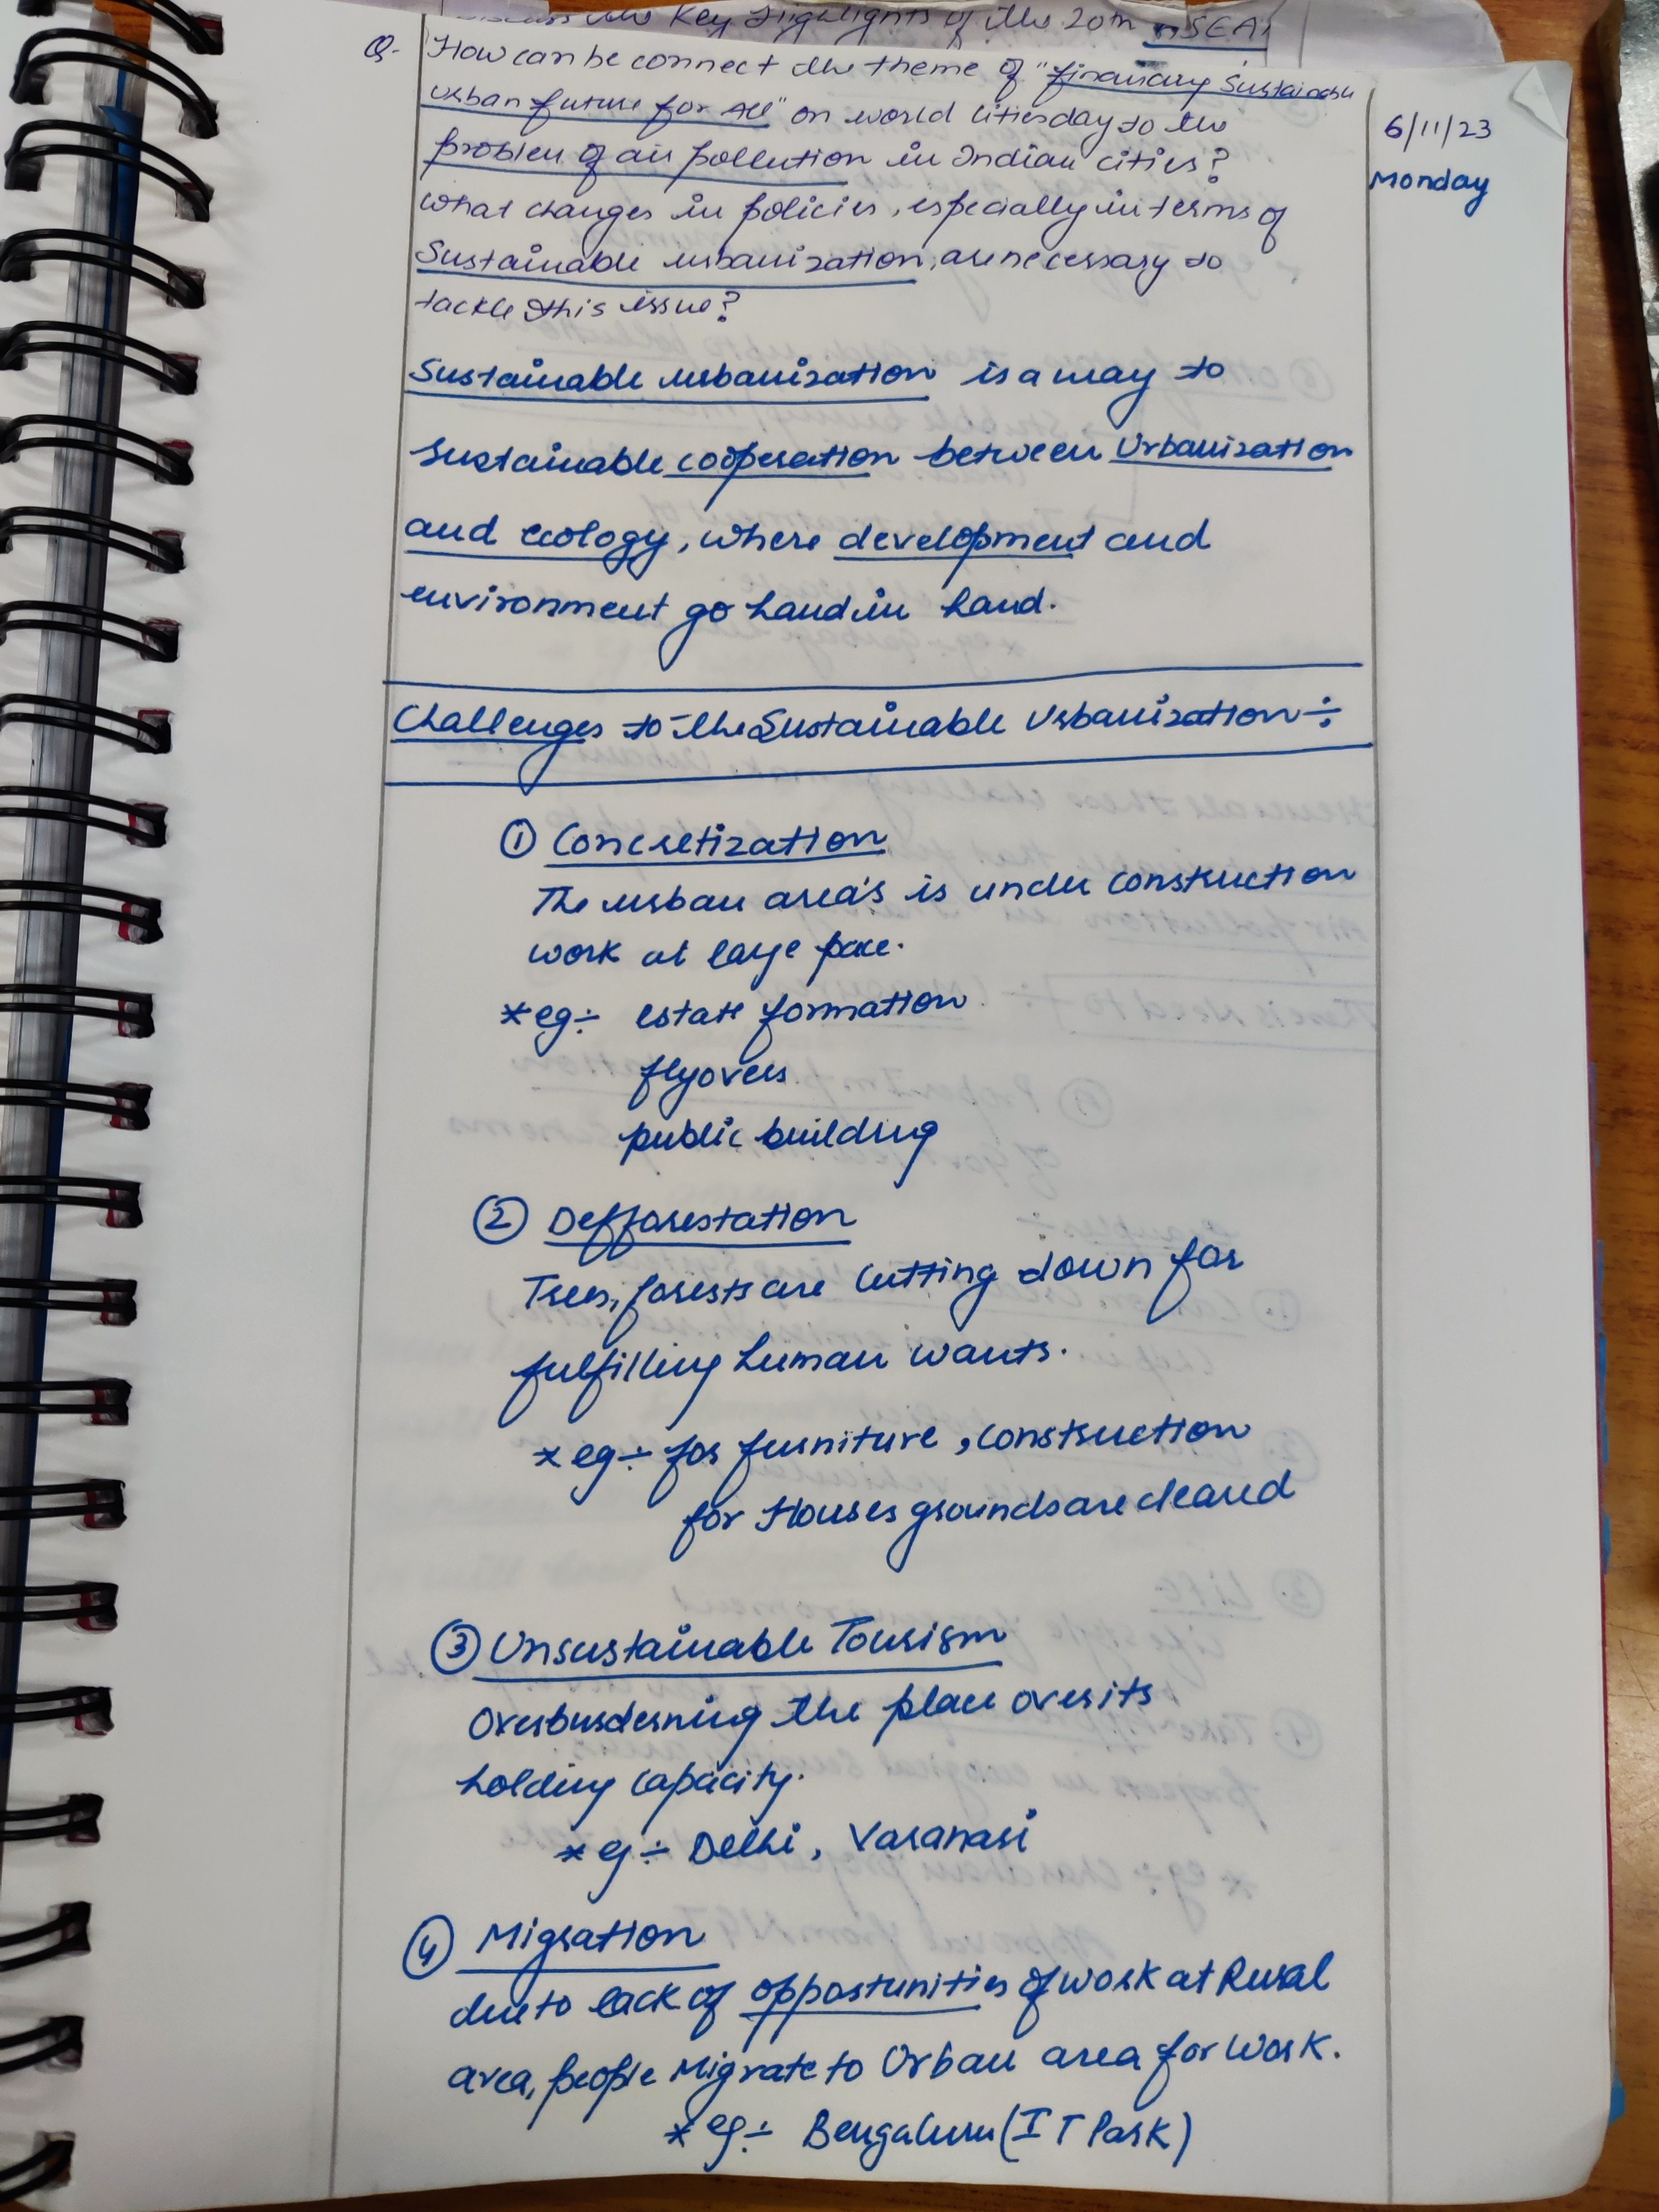 Discuss the Key Highlights of the 20th
Q- How can be connect the theme of "financing Sustainable
urban future for All" on world cities day to the
problem of air pollution in Indian cities?
what changes in policies, especially in terms of
Sustainable urbanization, are necessary to
tackle this issue?
6/11/23
Monday
Sustainable urbanization is a way to
sustainable cooperation between Urbanization
and ecology, where development and
environment go hand in hand.
Challenges to the Sustainable Urbanization ÷
① Concretization
The urban area's is under construction
work at large pace.
* eg ÷ estate formation
flyovers
public building
② Defforestation
Trees, forests are cutting down for
fulfilling human wants.
* eg ÷ for furniture, construction
for Houses grounds are cleared
③ Unsustainable Tourism
Overburderning the place over its
holding capacity.
* eg ÷ Delhi, Varanasi
④ Migration
due to lack of opportunities of work at Rural
area, people Migrate to Urban area for work.
* eg ÷ Bengaluru (IT Park)